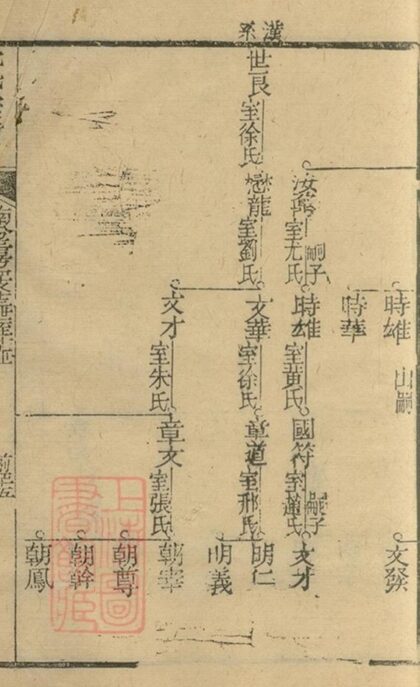 漢系
時雄
出嗣
文發
時華
汝
室尤氏
嗣子
時雄
室黄氏
國符
室蕭氏
嗣子
文才
世良
室徐氏
懋龍
室劉氏
文華
室徐氏
章道
室邢氏
明仁
明義
文才
室朱氏
章文
室張氏
朝宰
朝尊
朝幹
朝鳳
上海圖
書館藏